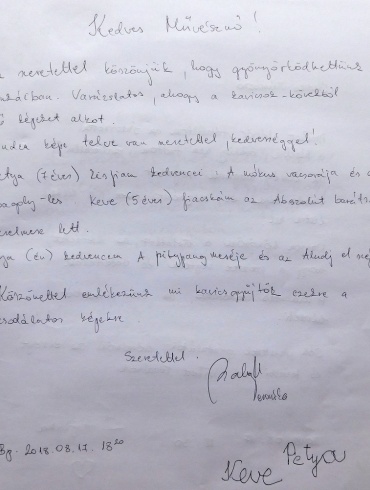 Kedves Művésznő!
szeretettel köszönjük, hogy gyönyörködhettünk
Varázslatos, ahogy a kavicsok-kövekből
képeket alkot.
képe telve van szeretettel, kedvességgel!
(7 éves) kisfiam kedvencei A mókus vacsorája és a
-lés Keve (5 éves) fiacskám az Abszolút barátság
lett.
(én) kedvencem A pitypang meséje és az Aludj el
Köszönettel emlékezünk mi kavicsgyűjtők ezekre a
képekre
Szeretettel.
Bp. 2018.08.17. 18²⁰
Keve Petya